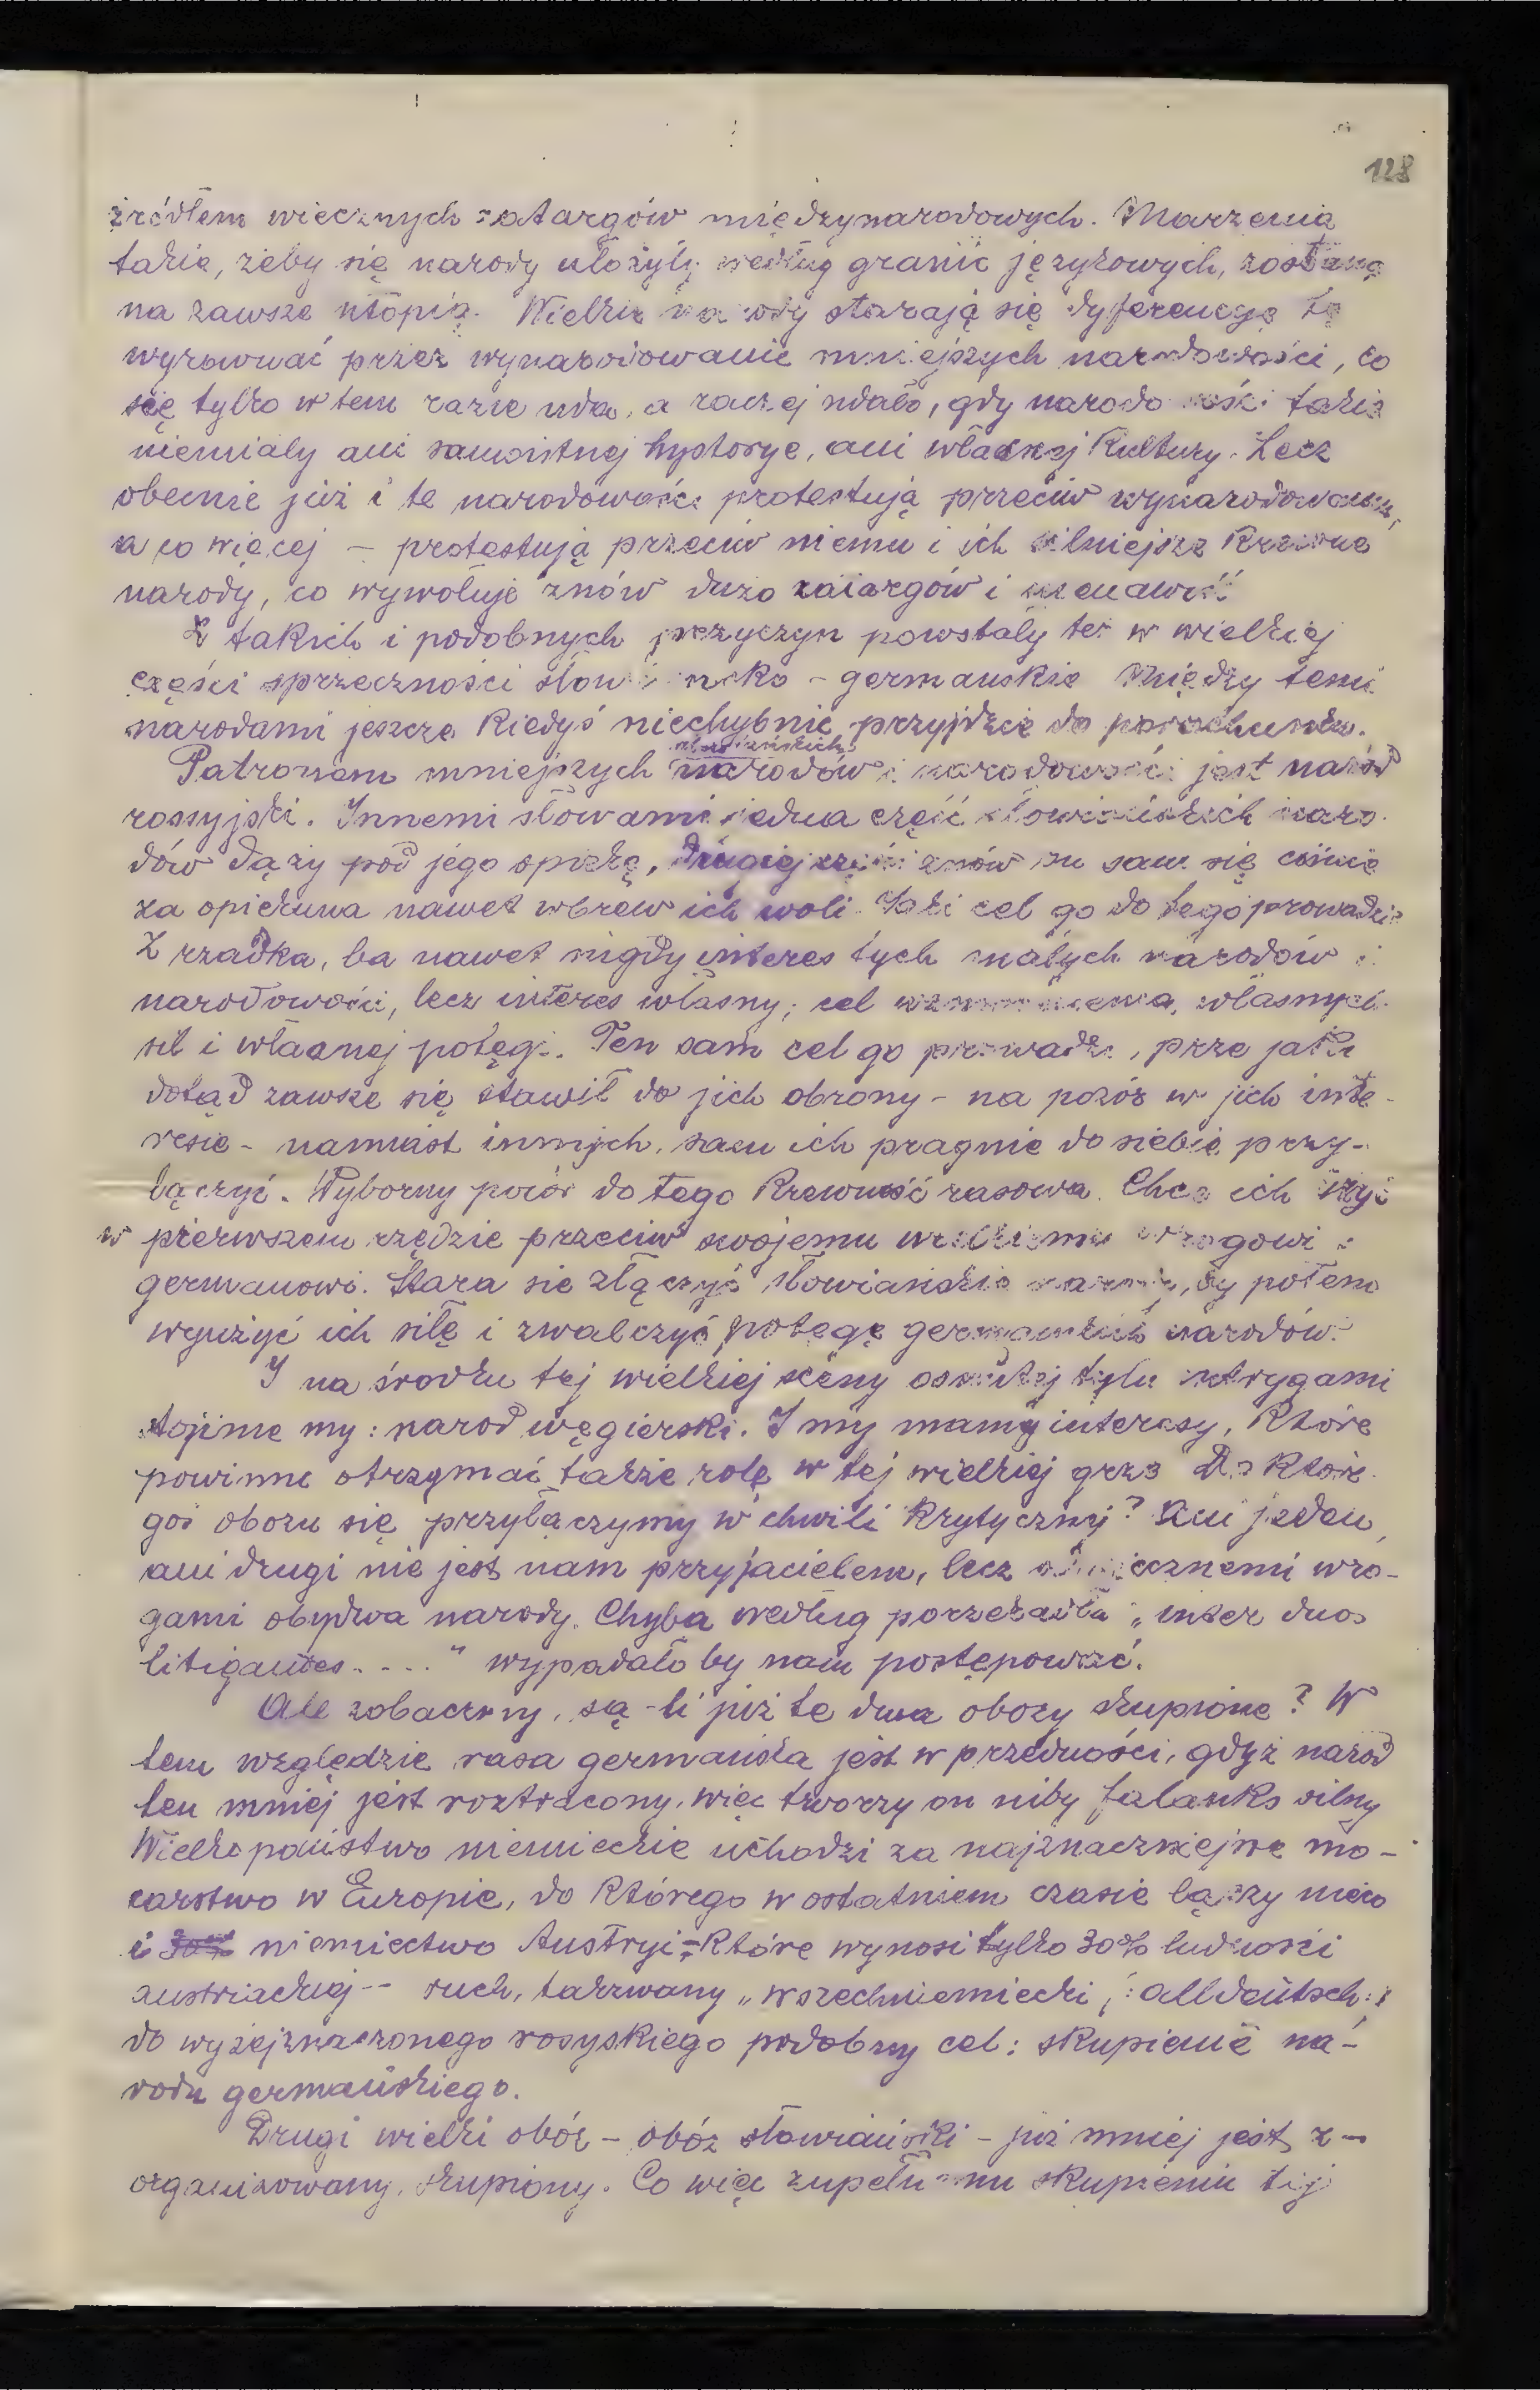 128
źródłem wiecznych zatargów międzynarodowych. Marzenia
takie, żeby się narody ułożyły według granic językowych, zostaną
na zawsze utopią. Wielkie narody starają się dyferencye tę
wyrównać przez wynarodowanie mniejszych narodowości, co
się tylko w tem razie uda, a raczej udało, gdy narodowości takie
niemiały ani samoistnej hystorye, ani własnej kultury. Lecz
obecnie już i te narodowości protestują przeciw wynarodowaniu,
a co więcej – protestują przeciw niemu i ich silniejsze krewne
narody, co wywołuje znów dużo zatargów i nienawiść
Z takich i podobnych przyczyn powstały też w wielkiej
części sprzeczności słowiańsko - germańskie Między temi
narodami jeszcze kiedyś niechybnie przyjdzie do porachunku.
słowiańskich
Patronem mniejszych narodów i narodowości jest naród
rossyjski. Innemi słowami jedna część słowiańskich naro-
dów dąży pod jego opiekę, drugiej części znów on sam się ciśnie
za opiekuna nawet wbrew ich woli. Jaki cel go do tego prowadzi?
Z rzadka, ba nawet nigdy interes tych małych narodów i
narodowości, lecz interes własny; cel własnych
sił i własnej potęgi. Ten sam cel go prowadzi, prze jaki
dotąd zawsze się stawił do jich obrony – na pozór w jich inte-
resie – namiast innych, sam ich pragnie do siebie przy-
łączyć. Wyborny powód do tego krewność rasowa. Chce ich użyć
w pierwszem rzędzie przeciw swojemu wielkiemu wrogowi :
germanowi. Stara sie złączyć słowiańskie narody, by potem
wyużyć ich siłę i zwalczyć potęgę germańskich narodów.
I na środku tej wielkiej sceny osnutej tylu intrygami
stojime my: narod węgierski. I my mamy interesy, które
powinne otrzymać także rolę w tej wielkiej grze Do które-
goś obozu się przyłączymy w chwili krytycznej? Ani jeden,
ani drugi nie jest nam przyjacielem, lecz odwiecznemi wro-
gami obydwa narody. Chyba według porzekadła „inter duos
litigantes . . . ." wypadało by nam postępować.
Ale zobaczmy, są-li już te dwa obozy skupione? W
tem względzie rasa germańska jest w przedności, gdyż naród
ten mniej jest roztracony, więc tworzy on niby falanks silny
Wielkopaństwo niemieckie uchodzi za najznaczniejsze mo-
carstwo w Europie, do którego w ostatniem czasie łączy nieco
i niemiectwo Austryi – które wynosi tylko 30% ludności
austriackiej – ruch, takzwany „wszechniemiecki /: alldeutsch :/
do wyżejznaczonego rosyskiego podobny cel: skupienie na-
rodu germańskiego.
Drugi wielki obóz – obóz słowiański – już mniej jest z-
organizowany, skupiony. Co więc zupełnemu skupieniu tej